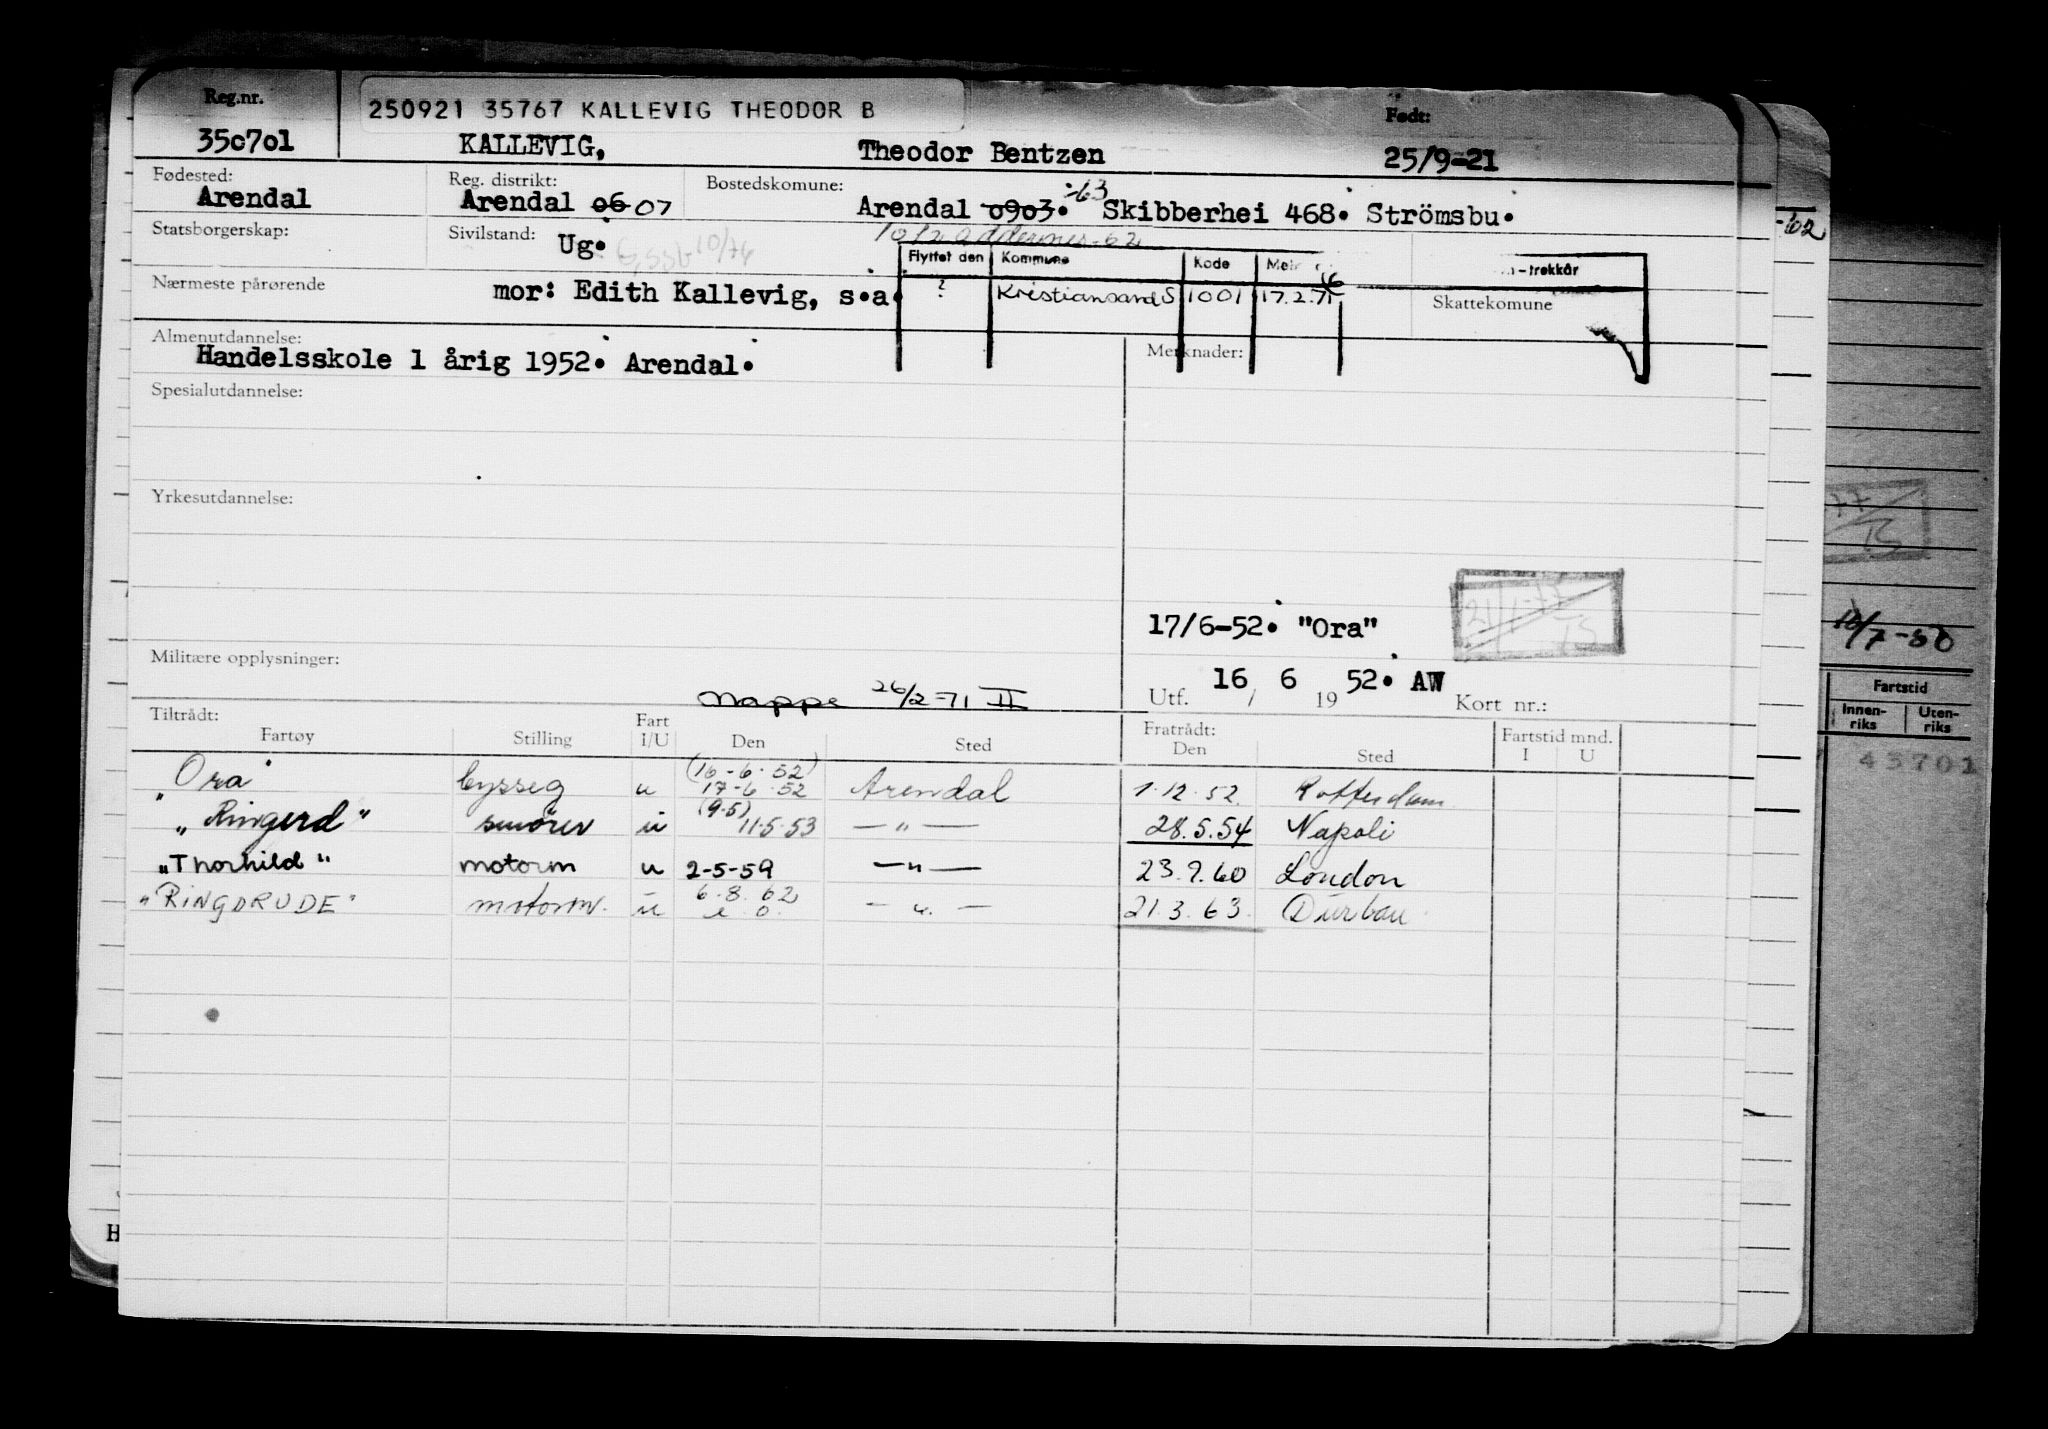 Reg.nr.
250921 35767 KALLEVIG THEODOR B
Født:
35c7o1 KALLEVIG, Theodor Bentzen 25/9-21
Fødested: Reg. distrikt: Bostedskomune: -63
Arendal Arendal 06 07 Arendal 0903. Skibberhei 468. Strömsbu.
-62
Statsborgerskap: Sivilstand: Ug. 10/76
Flyttet den Kommune Kode -trekkår
? Kristiansand S 1001 17.2.71
Nærmeste pårørende mor: Edith Kallevig, s.a. Skattekomune
Almenutdannelse: Merknader:
Handelsskole 1 årig 1952. Arendal.
Spesialutdannelse:
Yrkesutdannelse:
17/6-52. "Ora"
Militære opplysninger:
Mappe 26/2-71 II
Utf. 16 / 6 19 52. AW Kort nr.:
Tiltrådt: Fratrådt:
Fartøy Stilling Fart I/U Den Sted Den Sted Fartstid mnd. I U
(16-6-52)
"Ora" bysseg u 17-6-52 Arendal 1.12.52. Rotterdam
(9.5)
"Ringerd" smører u 11.5.53 —"— 28.5.54 Napoli
"Thorhild" motorm u 2-5-59 —"— 23.7.60 London
"RINGDRUDE" motorm. u 6.8.62 —"— 21.3.63. Durban
Fartstid
Innen-riks Uten-riks
45701
H